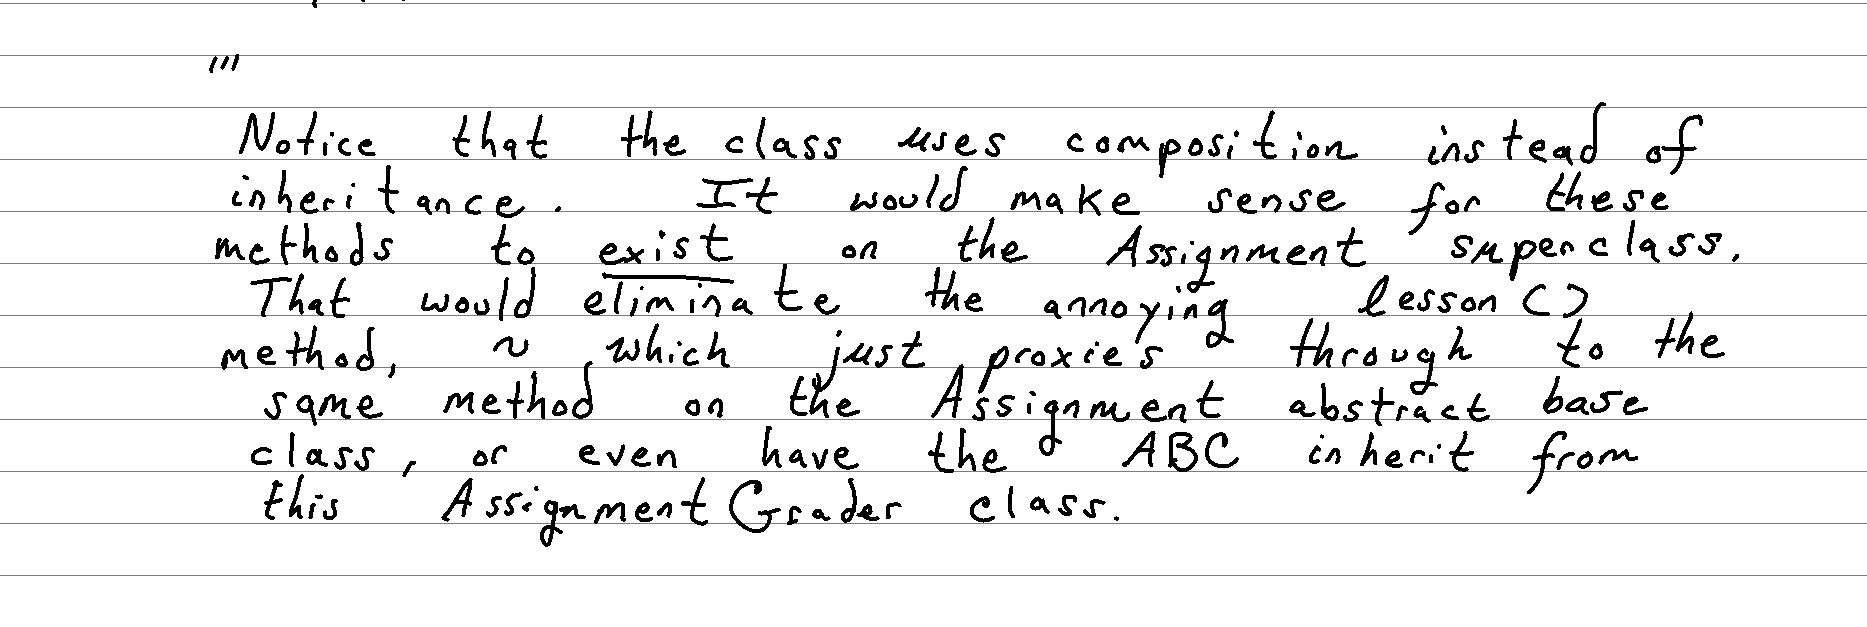 '''
Notice that the class uses composition instead of
inheritance. It would make sense for these
methods to exist on the Assignment superclass.
That would eliminate the annoying lesson()
method, ~ which just proxies through to the
same method on the Assignment abstract base
class, or even have the ABC inherit from
this AssignmentGrader class.